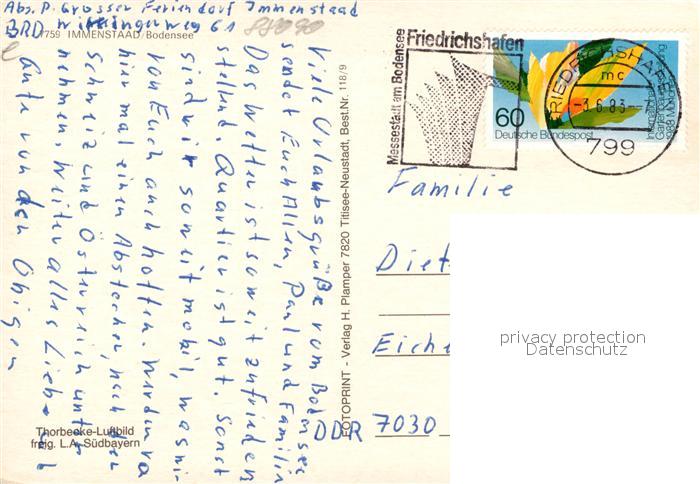 Abs. P. Grosser Feriendorf Immenstaad
BRD 7759 IMMENSTAAD/Bodensee
61
88090
Viele Urlaubsgrüße vom Bodensee
sendet Euch Allen, Paul und Familie
Das Wetter ist soweit zufrieden
stellend. Quartier ist gut. Sonst
sind wir soweit mobil, was wir
von Euch auch hoffen. Werden von
hier mal einen Abstecher, nach der
Schweiz und Österreich unter
nehmen. Weiter alles Liebe u.
Gute von den Obigen
Thorbecke-Luftbild
freig. L.A. Südbayern
FOTOPRINT - Verlag H. Plamper 7820 Titisee-Neustadt, Best.Nr. 118/9
Messestadt am Bodensee
Friedrichshafen
60
Deutsche Bundespost
Internationale
FRIEDRICHSHAFEN
mc
-3.6.83-
799
Familie
Diet
Eiche
DDR 7030
privacy protection
Datenschutz